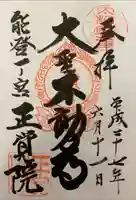 奉拝
平成二十七年
六月十一日
大聖不動尊
能登一の宮
正覚院